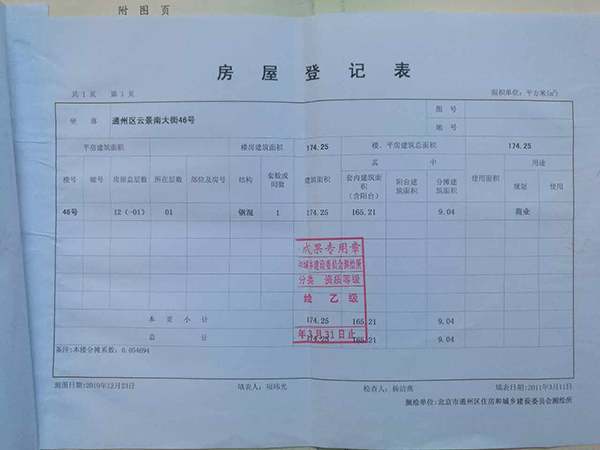 附图页
房屋登记表
共1页 第1页 面积单位:平方米(㎡)
坐落 通州区云景南大街46号 图号
地号
平房建筑面积 楼房建筑面积 174.25 楼、平房建筑总面积 174.25
楼号 幢号 房屋总层数 所在层数 部位及房号 结构 套数或间数 建筑面积 其中 使用面积 用途
套内建筑面积(含阳台) 阳台建筑面积 分摊建筑面积 规划 使用
46号 12(-01) 01 钢混 1 174.25 165.21 9.04 商业
成果专用章
和城乡建设委员会测绘所
分类 资质等级
绘 乙级
年3月31日止
本页小计 174.25 165.21 9.04
总计 174.25 165.21 9.04
备注:本楼分摊系数:0.054694
测图日期:2010年12月23日 填表人: 检查人:杨洁燕 填表日期:2011年3月11日
测绘单位:北京市通州区住房和城乡建设委员会测绘所